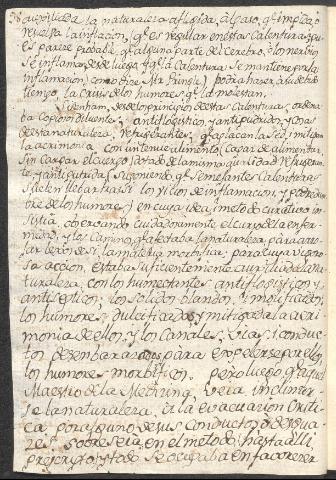 auxiliada la naturaleza afligida, al paso, qe. implica o
revaxa la inflacion, qe. es regular en estas Calenturas, pues
es parece probable qe. alguna parte del cerebro, o los nervios
se inflaman desde luego, y qe. la Calentura se mantiene por la
inflamacion, como dice Mr. Prinsle) podra hacer, à su debido
tiempo, la crisis de los humores, qe. la molestan.
Sidenham, desde los principios de estas Calenturas, ordena
ba copiosos diluentes, antiflogisticos, y antipudridos, y cosas
de esta naturaleza, refrigerantes, qe. aplacen la sed, i mitiguen
la acrimonia con un tenue alimento, capaz de alimentar
sin cargar el cuerpo, sacado de la misma qualidad refrigerante
y antiputrida, suponiendo qe. semejantes Calenturas
suelen llebar tras si los vicios de inflamacion, y podredum
bre de los humores, en cuya idea, i metodo curativo in
sistia, observando cuidadosamente el curso de la enfer
medad, y los caminos, qe. afectaba la naturaleza, para arro
lar de ò de si, la materia morbifica; para cuya vigoro
sa accion, estaba suficientemente auxiliada la na
turaleza, con los humectantes, antiflogisticos, y
antisepticos; los solidos blandos, y modificados,
los humores, dulcificados, y mitigada la acri
monia de ellos, y los canales, vias, i conduc
tos desembarazados para expelerse por ellos
los humores morbificos. pero luego qe. aquel
Maestro de la Medicina, veia inclinar
se la naturaleza, à la evacuacion Criti
ca por alguno de sus conductos, ò desagua
res, sobreseia, en el metodo, hasta alli,
prescripto, y todo se ocupaba en favorecer